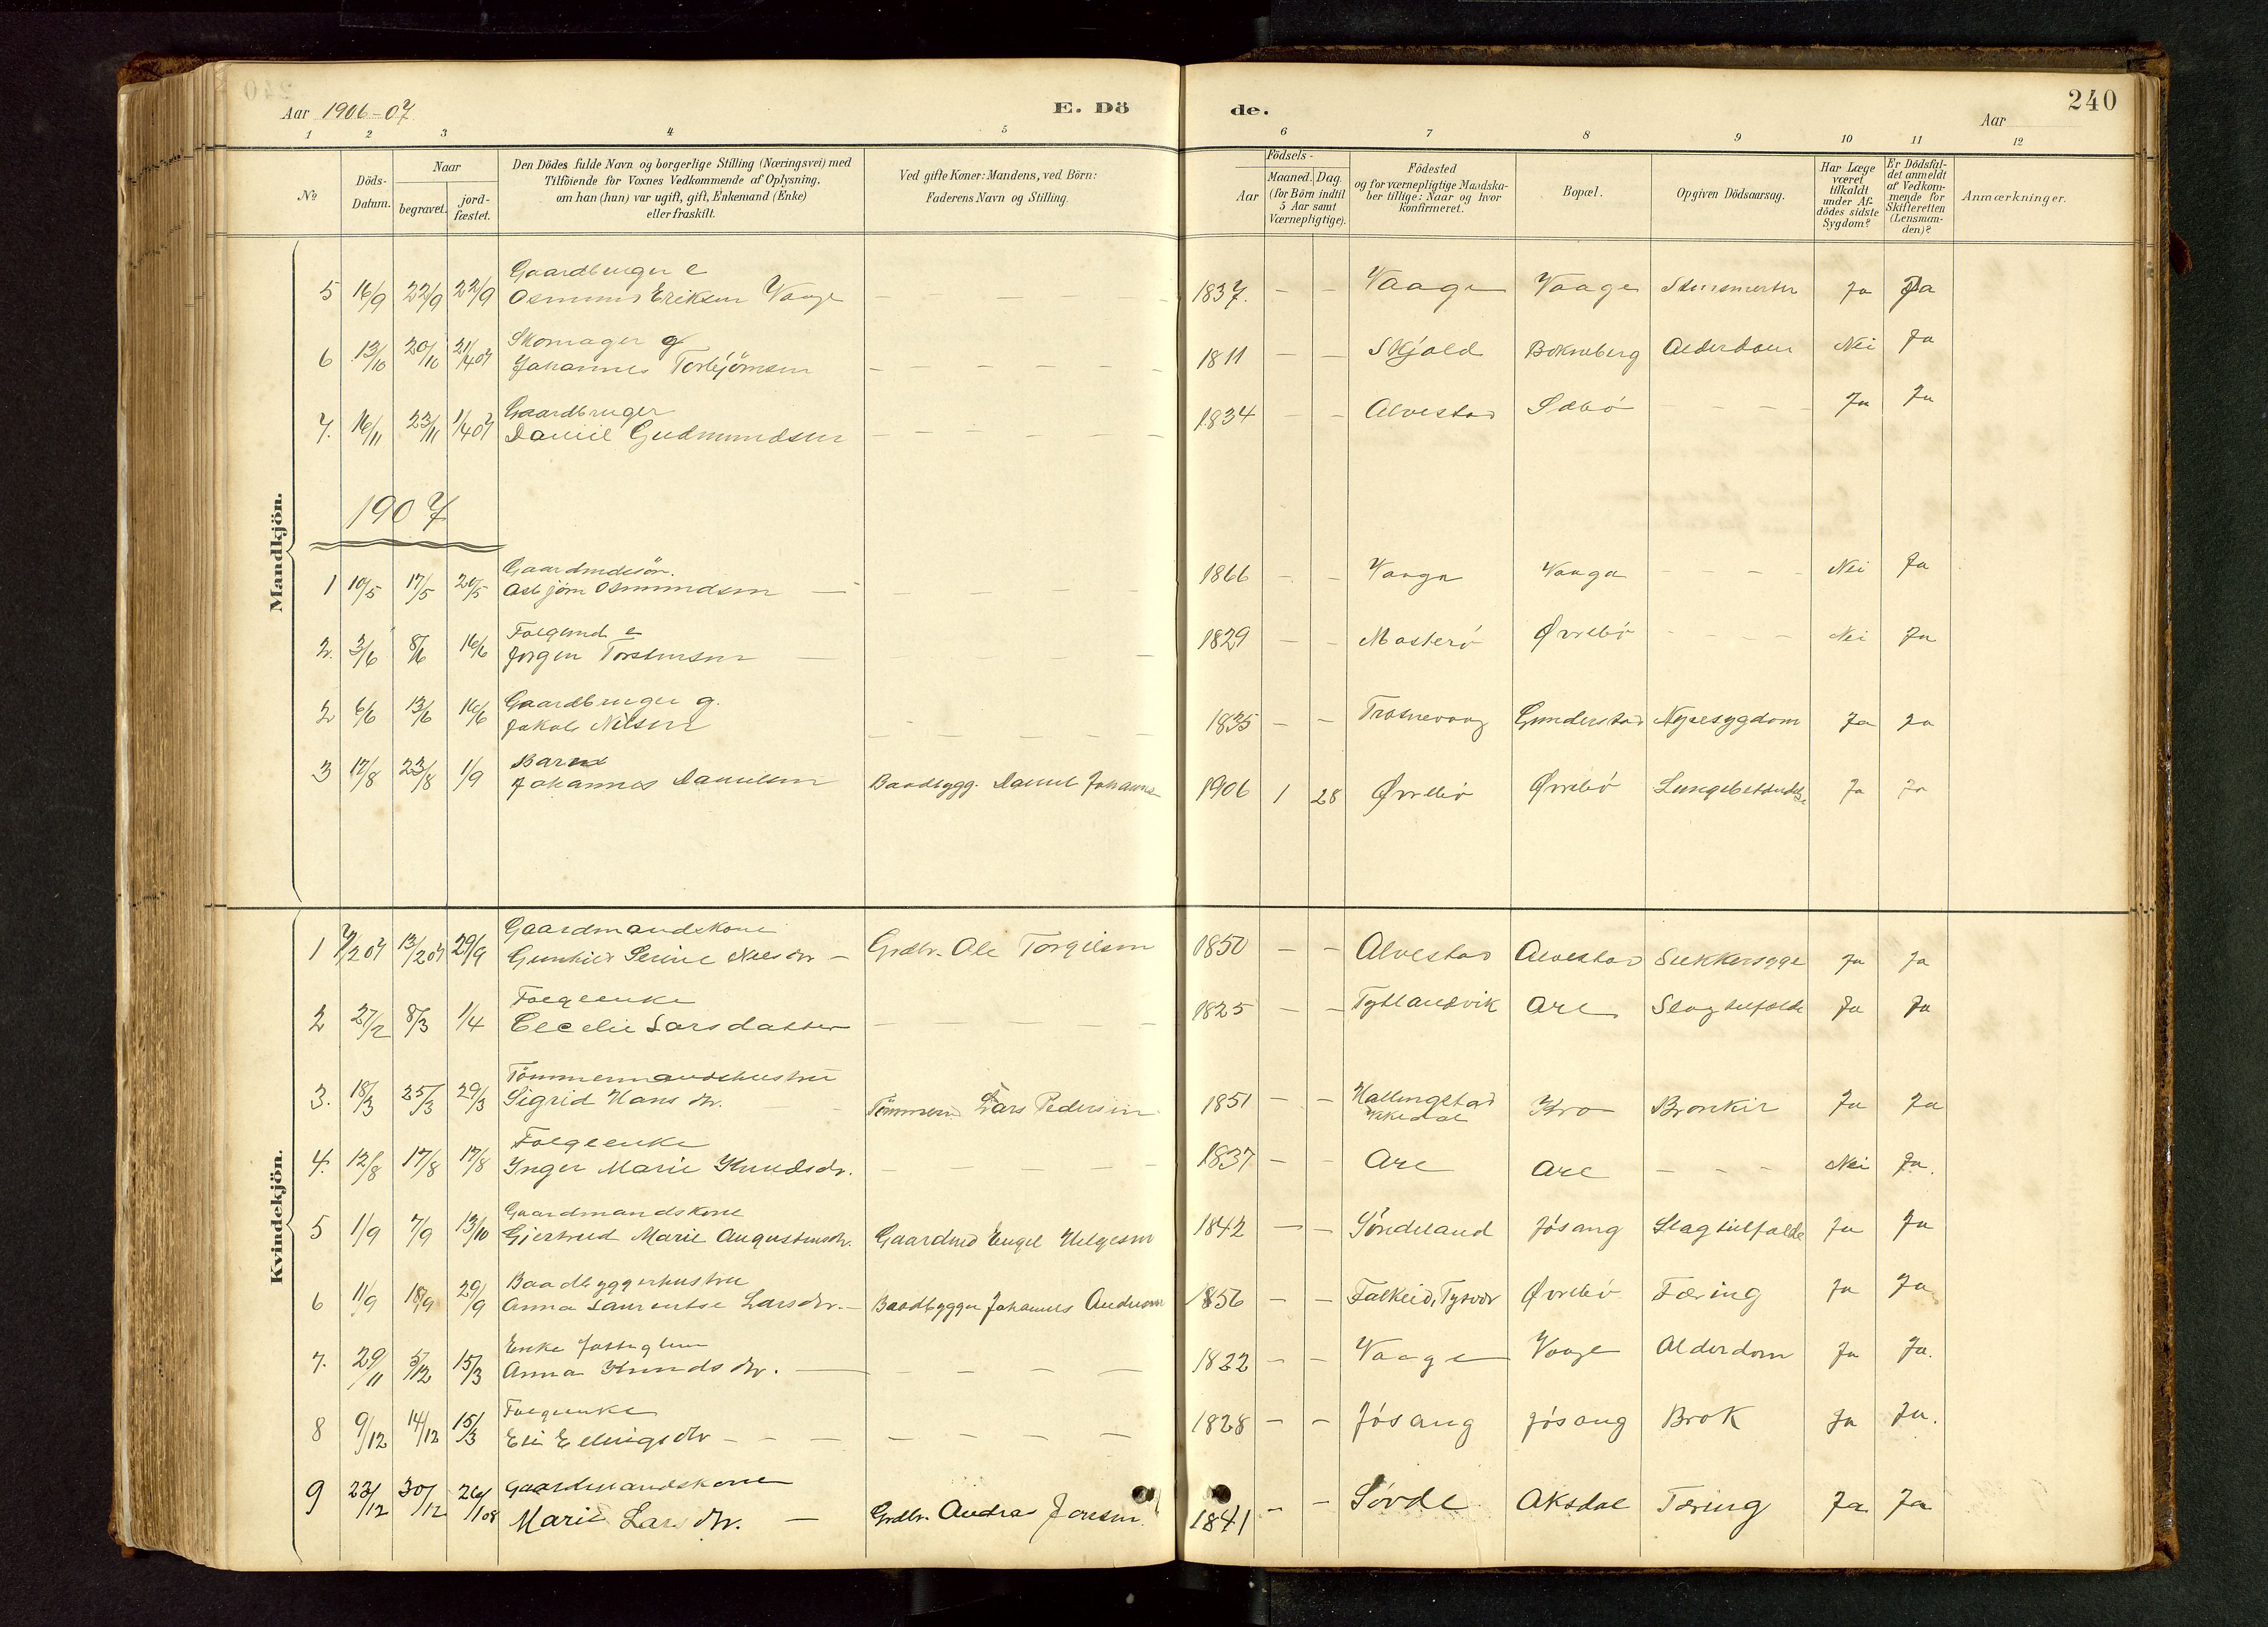 240
Aar 1906-07
E. Dö
de.
Aar
1 2 3 4 5 6 7 8 9 10 11 12
No
Döds-Datum.
Naar
begravet.
jord-fæstet.
Den Dödes fulde Navn og borgerlige Stilling (Næringsvei) med
Tilföiende for Voxnes Vedkommende af Oplysning,
om han (hun) var ugift, gift, Enkemand (Enke)
eller fraskilt.
Ved gifte Koner: Mandens, ved Börn:
Faderens Navn og Stilling.
Födsels-
Aar
Maaned. Dag.
(for Börn indtil
5 Aar samt
Værnepligtige).
Födested
og for værnepligtige Mandska-
ber tillige: Naar og hvor
konfirmeret.
Bopæl.
Opgiven Dödsaarsag.
Har Læge
været
tilkaldt
under Af-
dödes sidste
Sygdom?
Er Dödsfal-
det anmeldt
af Vedkom-
mende for
Skifteretten
(Lensman-
den)?
Anmærkninger.
Mandkjön.
Gaardbruger e
5 16/9 22/9 22/9 Osmund Eriksen Vaage — — — 1837. - - Vaage Vaage Ja Ja
Skomager g
6 13/10 20/10 21/4 07 Johannes Torbjörnsen - - - - - - 1811 - - Skjold Bokneberg Alderdom Nei Ja
Gaardbruger
7. 16/11 23/11 1/4 07 Daniel Gudmundsen - - - - - - 1834 - - Alvestad Sæbö - - - Ja Ja
1907
Gaardmdssön.
1 10/5 17/5 20/5 Asbjörn Osmundsen — - - - - 1866 - - Vaage Vaage - - - - Nei Ja
Folgemd. e
2. 3/6 8/6 16/6 Jorgen Torstensen — - - - 1829 - - Mosterö Øvrebö - - - - Nei Ja
Gaardbruger g.
2 6/6 13/6 16/6 Jakob Nilsen - - - - - 1835 - - Gunderstad Nyresygdom Ja Ja
Barn
3 17/8 23/8 1/9 Johannes Danielsen Baadbygg. Daniel Johannes 1906 1 28 Øvrebö Øvrebö Lungebetændelse Ja Ja
Kvindekjön.
Gaardmandskone
1 7/2 07 13/2 07 29/9 Gunhild Serine Nilsdtr — Grdbr. Ole Torgilsen 1850 - - Alvestad Alvestad Sukkersyge Ja Ja
Folgeenke
2 27/2 8/3 1/4 Cecelie Larsdatter - - - - - 1825 - - Tytlandsvik Are Slagtilfælde Ja Ja
Tömmermandshustru
3. 18/3 25/3 29/3 Sigrid Hansdtr. - - Tömmerm. Lars Pedersen 1851 - - Hallingstad
Vikedal Kro Bronkit Ja Ja
Folgeenke
4. 12/8 17/8 17/8 Inger Marie Knudsdtr. - - - - - 1837 - - Are Are - - - Nei Ja.
Gaardmandskone
5 1/9 7/9 13/10 Gjertrud Marie Augustinsdtr. Gaardmd Engel Helgesen 1842 - - Söndeland Jösang Slagtilfælde Ja Ja
Baadbyggerhustru
6 11/9 18/9 29/9 Anna Laurentse Larsdtr. — Baadbygger Johannes Andersen 1856 - - Falkeid, Tysvær Øvrebö Tæring Ja Ja
Enke
7. 29/11 5/12 15/3 Anna Knudsdtr. — - - - - 1822 - - Vaage Vaage Alderdom Ja Ja.
Folgeenke
8 9/12 14/12 15/3 Eli Ellingsdtr - - - - - - - - 1828 - - Jösang Jösang Brok Ja Ja.
Gaardmandskone
9 23/12 30/12 26/1 08 Marie Larsdtr. — Grdbr. Andreas Jonsen 1841 - - Sövde Aksdal Tæring Ja Ja